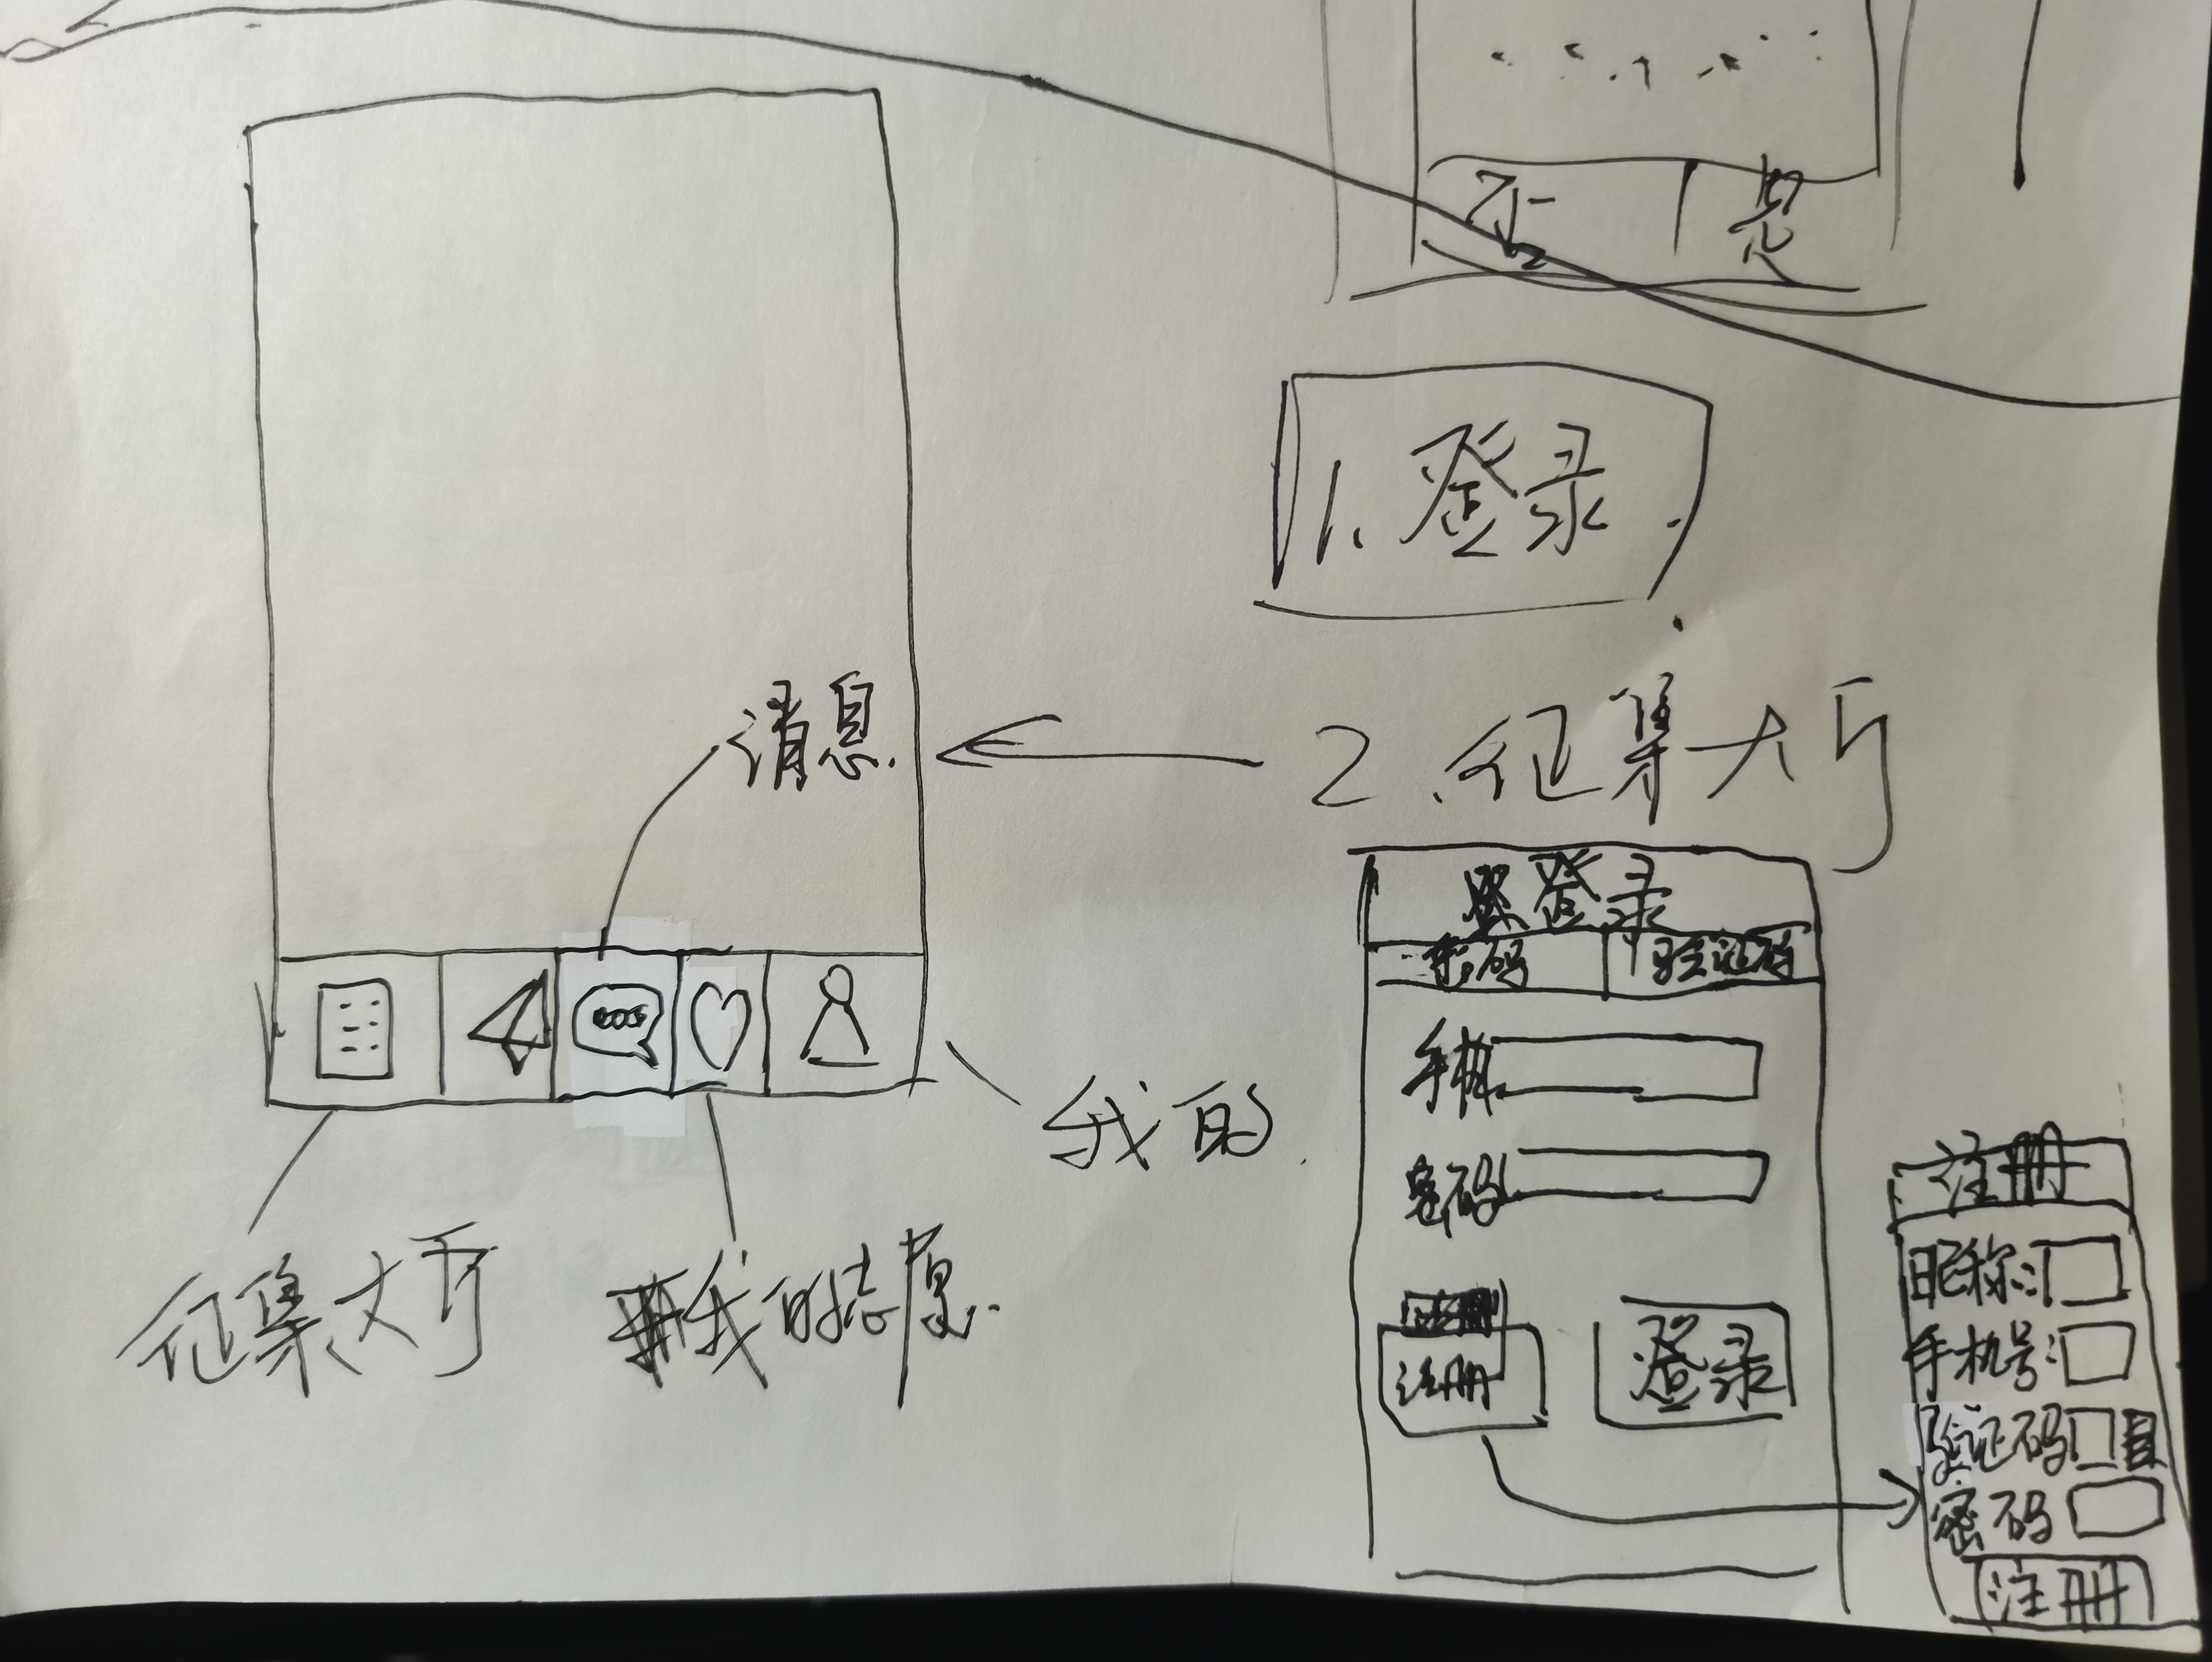 否 是
1. 登录
2. 征集大厅
消息.
我的.
征集大厅
我的志愿.
登录
密码 验证码
手机
密码
注册
登录
注册
昵称:
手机号:
验证码
密码
注册